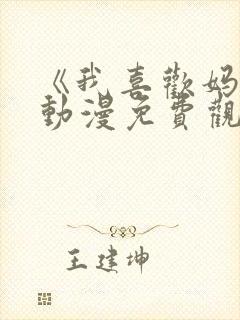 《我喜歡媽
動漫免費觀
王建坤